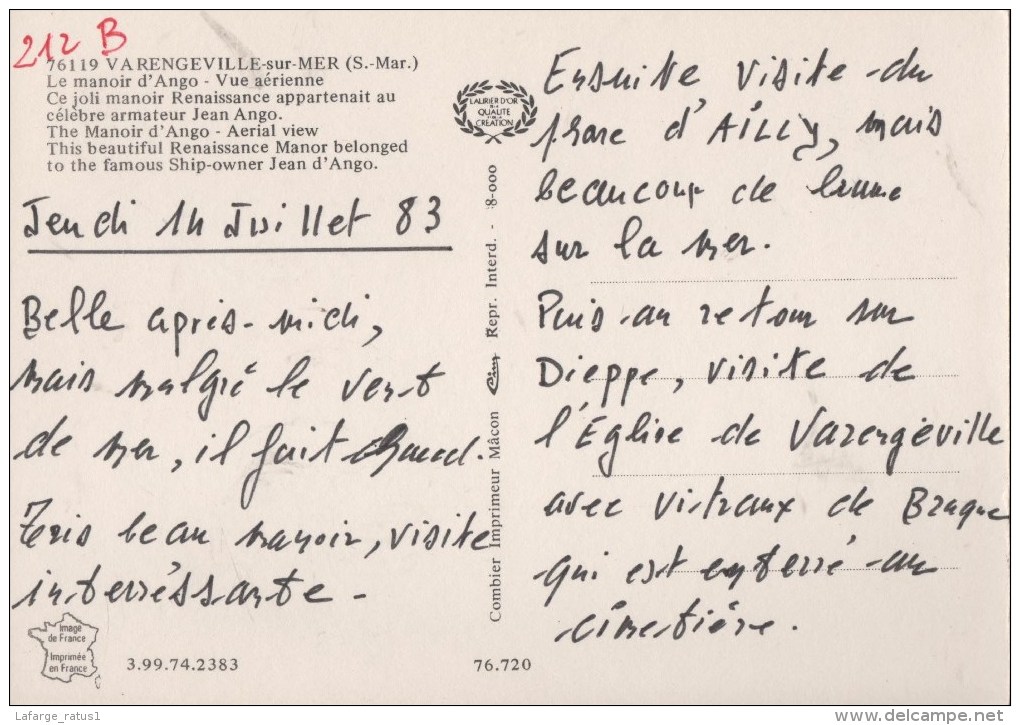 212 B
76119 VARENGEVILLE-sur-MER (S.-Mar.)
Le manoir d'Ango - Vue aérienne
Ce joli manoir Renaissance appartenait au
célèbre armateur Jean Ango.
The Manoir d'Ango - Aerial view
This beautiful Renaissance Manor belonged
to the famous Ship-owner Jean d'Ango.
Jeudi 14 Juillet 83
Belle après-midi,
mais malgré le vent
de mer, il fait chaud.
Très beau manoir, visite
interréssante -
Image
de France
Imprimée
en France
3.99.74.2383
LAURIER D'OR
DE LA
QUALITÉ
POUR LA
CRÉATION
Combier Imprimeur Mâcon Cim Repr. Interd. - 8-000
76.720
Ensuite visite du
phare d'AILLY, mais
beaucoup de brume
sur la mer.
Puis au retour sur
Dieppe, visite de
l'Église de Varengéville
avec vitraux de Braque
qui est enterré au
cimetière.
Lafarge_ratus1
www.delcampe.net